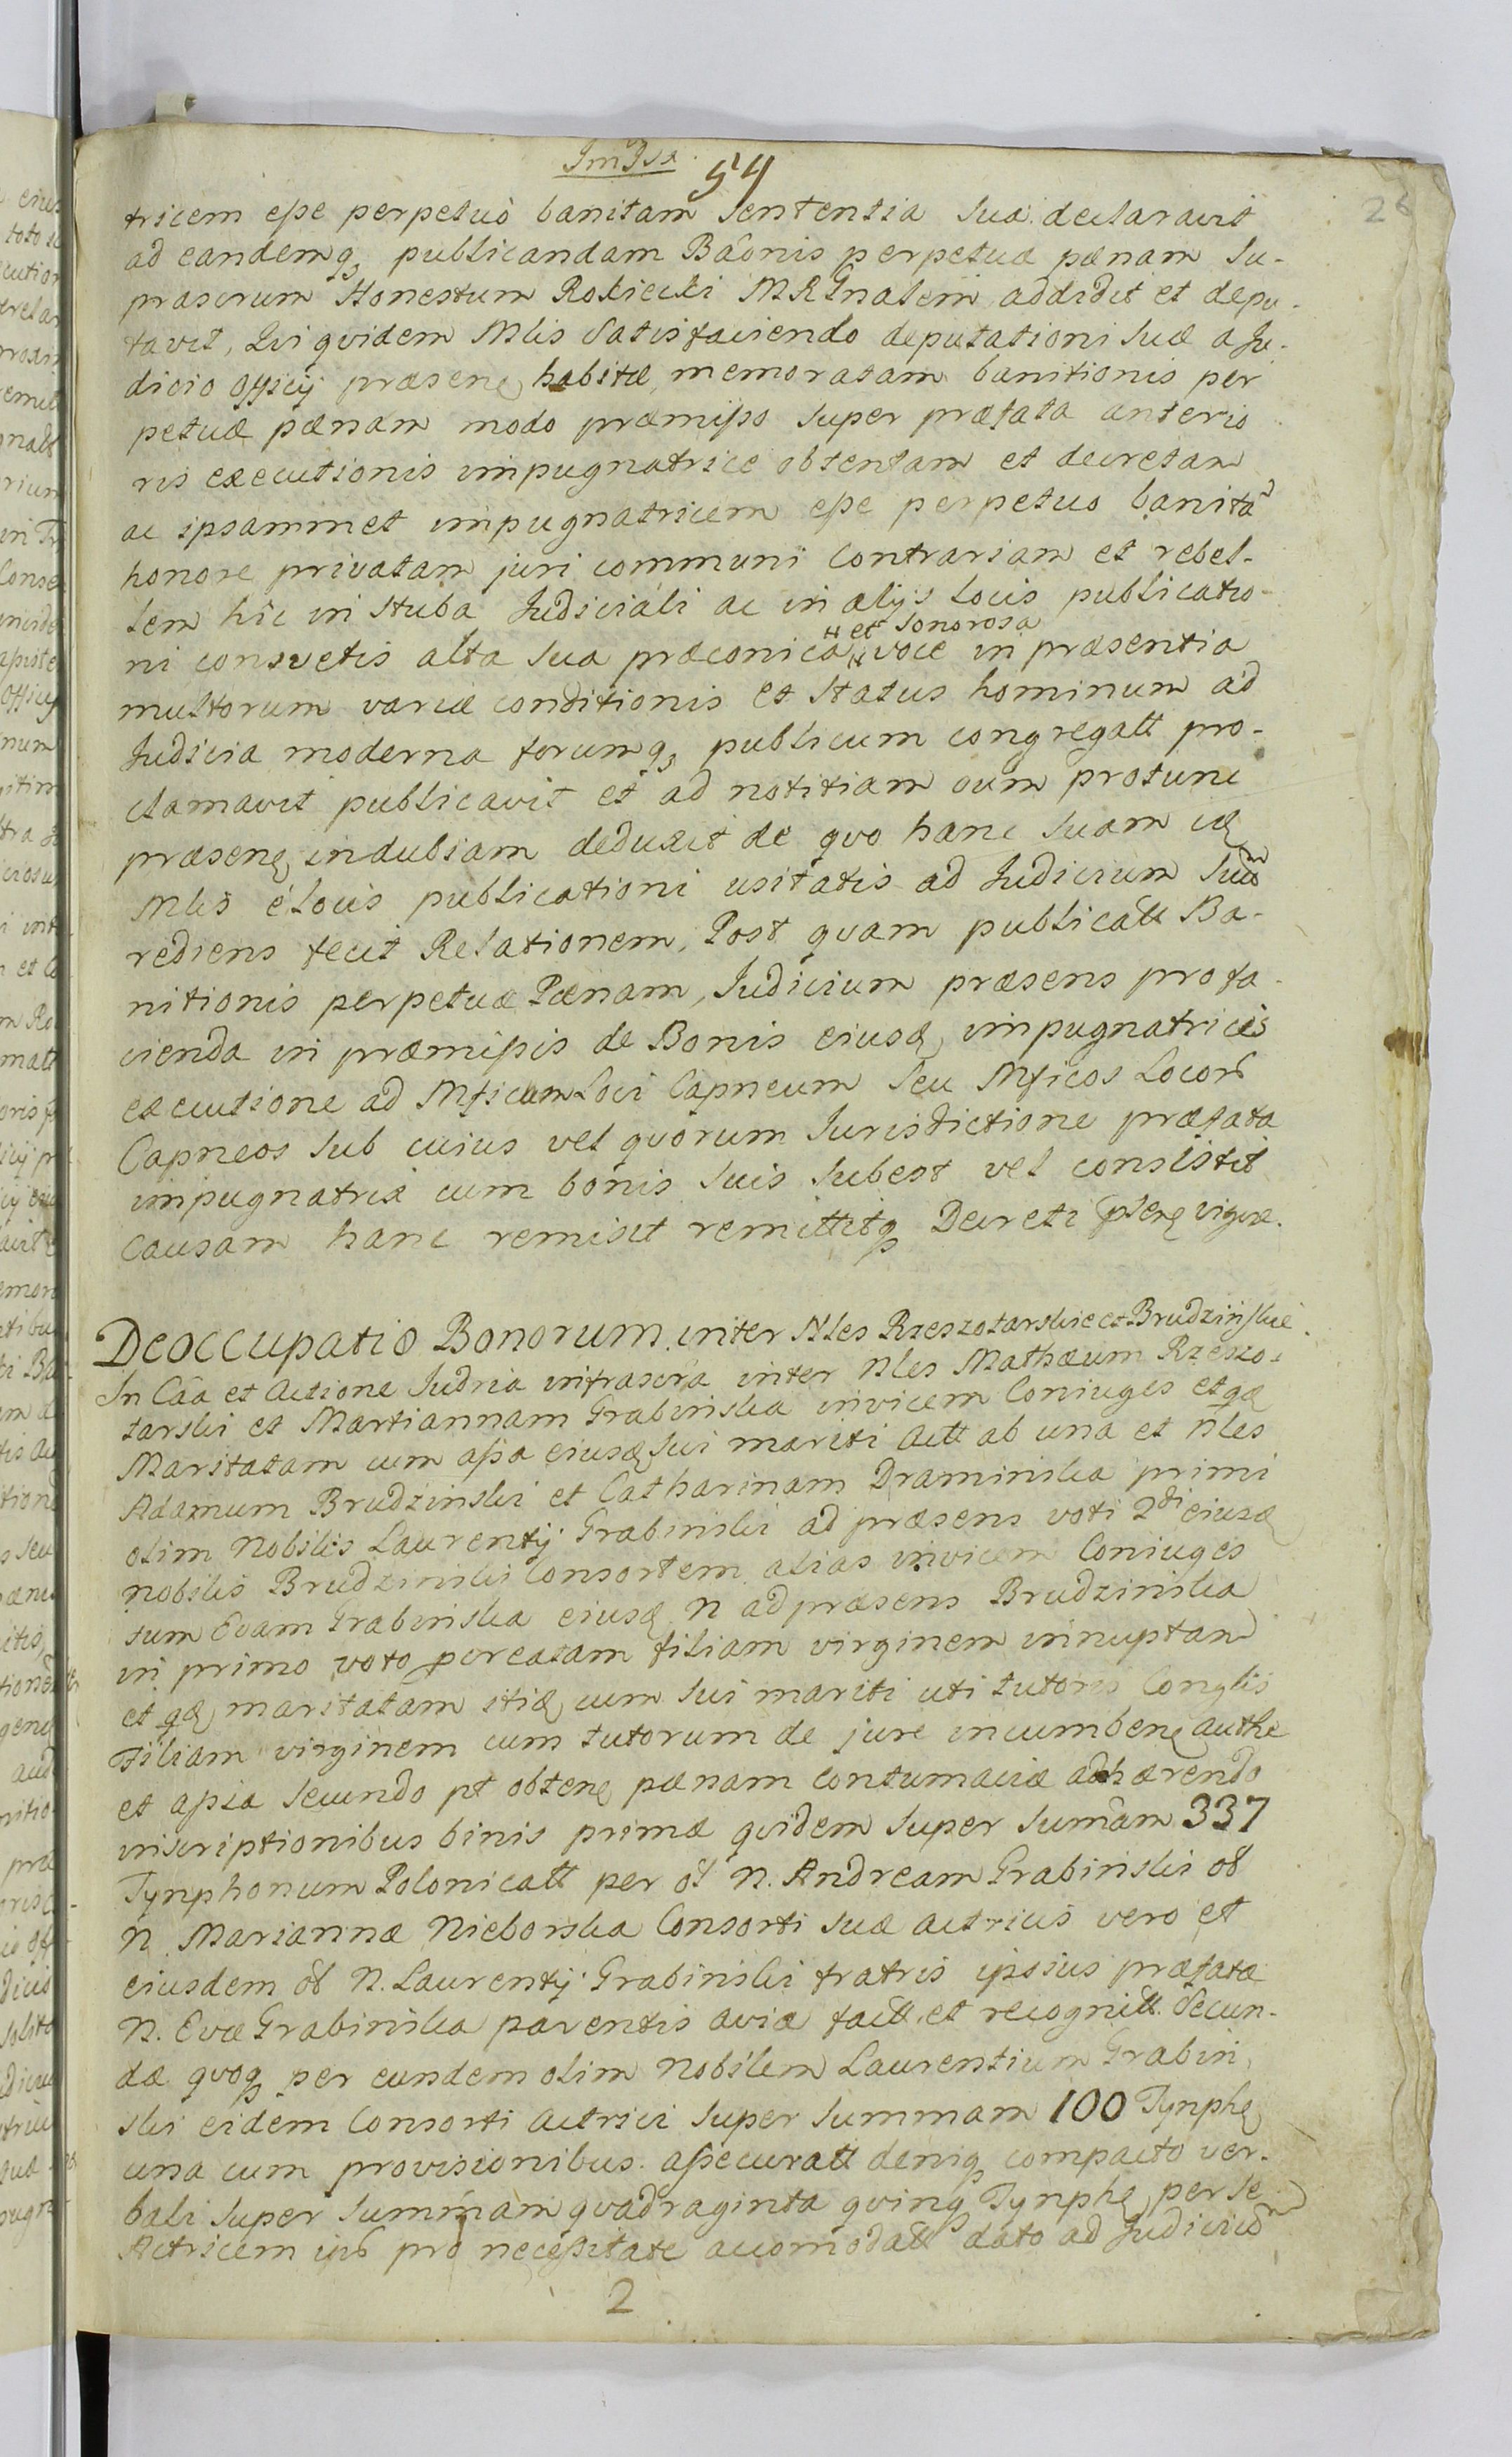 54
26
tricem esse perpetuò banitam Sententia Sua declaravit
ad eandemq; publicandam Bãonis perpetuæ pœnam Su-
prascrum Honestum Rokicki MRGnalem addidit et depu-
tavit, Qui quidem Mlis Satisfaciendo deputationi Suæ a Ju-
dicio Officij præsen habitæ memoratam banitionis per
petuæ pœnam modo præmisso Super præfata anterio
ris executionis impugnatrice obtentam et decretam
ac ipsammet impugnatricem esse perpetuo banitã
honore privatam juri communi Contrariam et rebel-
lem hic in Stuba Judiciali ac in alijs Locis publicatio-
ni consvetis alta Sua præconica et Sonorosa voce in præsentia
multorum variæ conditionis et Status hominum ad
Judicia moderna forumq; publicum congregatt pro-
clamavit publicavit et ad notitiam oum protunc
præsen indubiam deduxit de quo hanc Suam id
Mlis è Locis publicationi usitatis ad Judicium Suũ
rediens fecit Relationem, Post quam publicatt Ba-
nitionis perpetuæ Pœnam, Judicium præsens pro fa-
cienda in præmissis de Bonis eiusd impugnatricis
executione ad Mficum Loci Capneum Seu Mficos Locor
Capneos Sub cuius vel quorum Jurisdictione præfata
impugnatrix cum bonis Suis Subest vel consistit
Causam hanc remisit remittitq; Decreti psen vigore.
Deoccupatio Bonorum inter Nles Rzeszotarskie et Brudzinskie.
In Cãa et Actione Judria infrascra inter Nles Mathæum Rzeszo-
tarski et Martiannam Grabinska invicem Coniuges et qd
Maritatam cum assa eiusd Sui mariti Actt ab una et Nles
Adamum Brudzinski et Catharinam Draminska primi
olim Nobilis Laurentij Grabinski ad præsens voti 2di eiusd
nobilis Brudzinski Consortem alias invicem Coniuges
tum Evam Grabinska eiusd N ad præsens Brudzinska
in primo voto porcatam filiam virginem innuptam
et qd maritatam itid cum Sui mariti uti tutoris Conglis
Filiam virginem cum tutorum de jure incumben authe
et assia Secundo pt obten pœnam Contumaciæ adhærendo
inscriptionibus binis primæ quidem Super Sumam 337
Tynphonum Polonicatt per ol N. Andream Grabinski ol
N. Mariannæ Nieborska Consorti Suæ actricis vero et
eiusdem ol N. Laurentij Grabinski fratris ipsius præfatæ
N. Evæ Grabinska parentis aviæ factt et recognitt Secun-
dæ quoq; per eundem olim Nobilem Laurentium Grabin-
ski eidem Consorti actrici Super Summam 100 Tynph
una cum provisionibus assecuratt deniq; compacto ver-
bali Super Summam quadraginta quinq; Tynph per Se
Actricem ips pro necessitate accomodatt dato ad Judiciũ
2